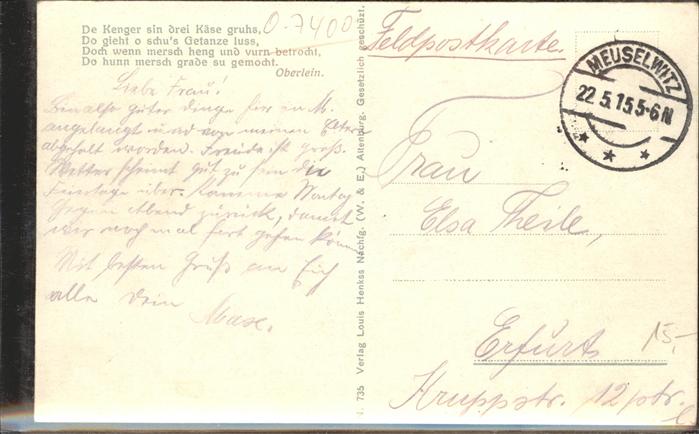 De Kenger sin drei Käse gruhs,
Do gieht o schu's Getanze luss,
Doch wenn mersch heng und vurn betrocht,
Do hunn mersch grade su gemocht.
Oberlein.
0-7400
Liebe Frau!
Bin also guter Dinge hier in M.
angelangt und von meinen Eltern
abgeholt worden. Freude ist groß.
Wetter scheint gut zu sein die
Feiertage über. Komme Montag
gegen Abend zurück, damit
wir noch mal fort gehen können
Mit besten Gruß an Euch
alle Dein
Max.
N. 735 Verlag Louis Henkss Nachfg. (W. & E.) Altenburg. Gesetzlich geschüzt.
Feldpostkarte.
MEUSELWITZ
22.5.15.5-6N
Frau
Elsa Theile,
Erfurt
Kruppstr. 12 ptr.
15,-